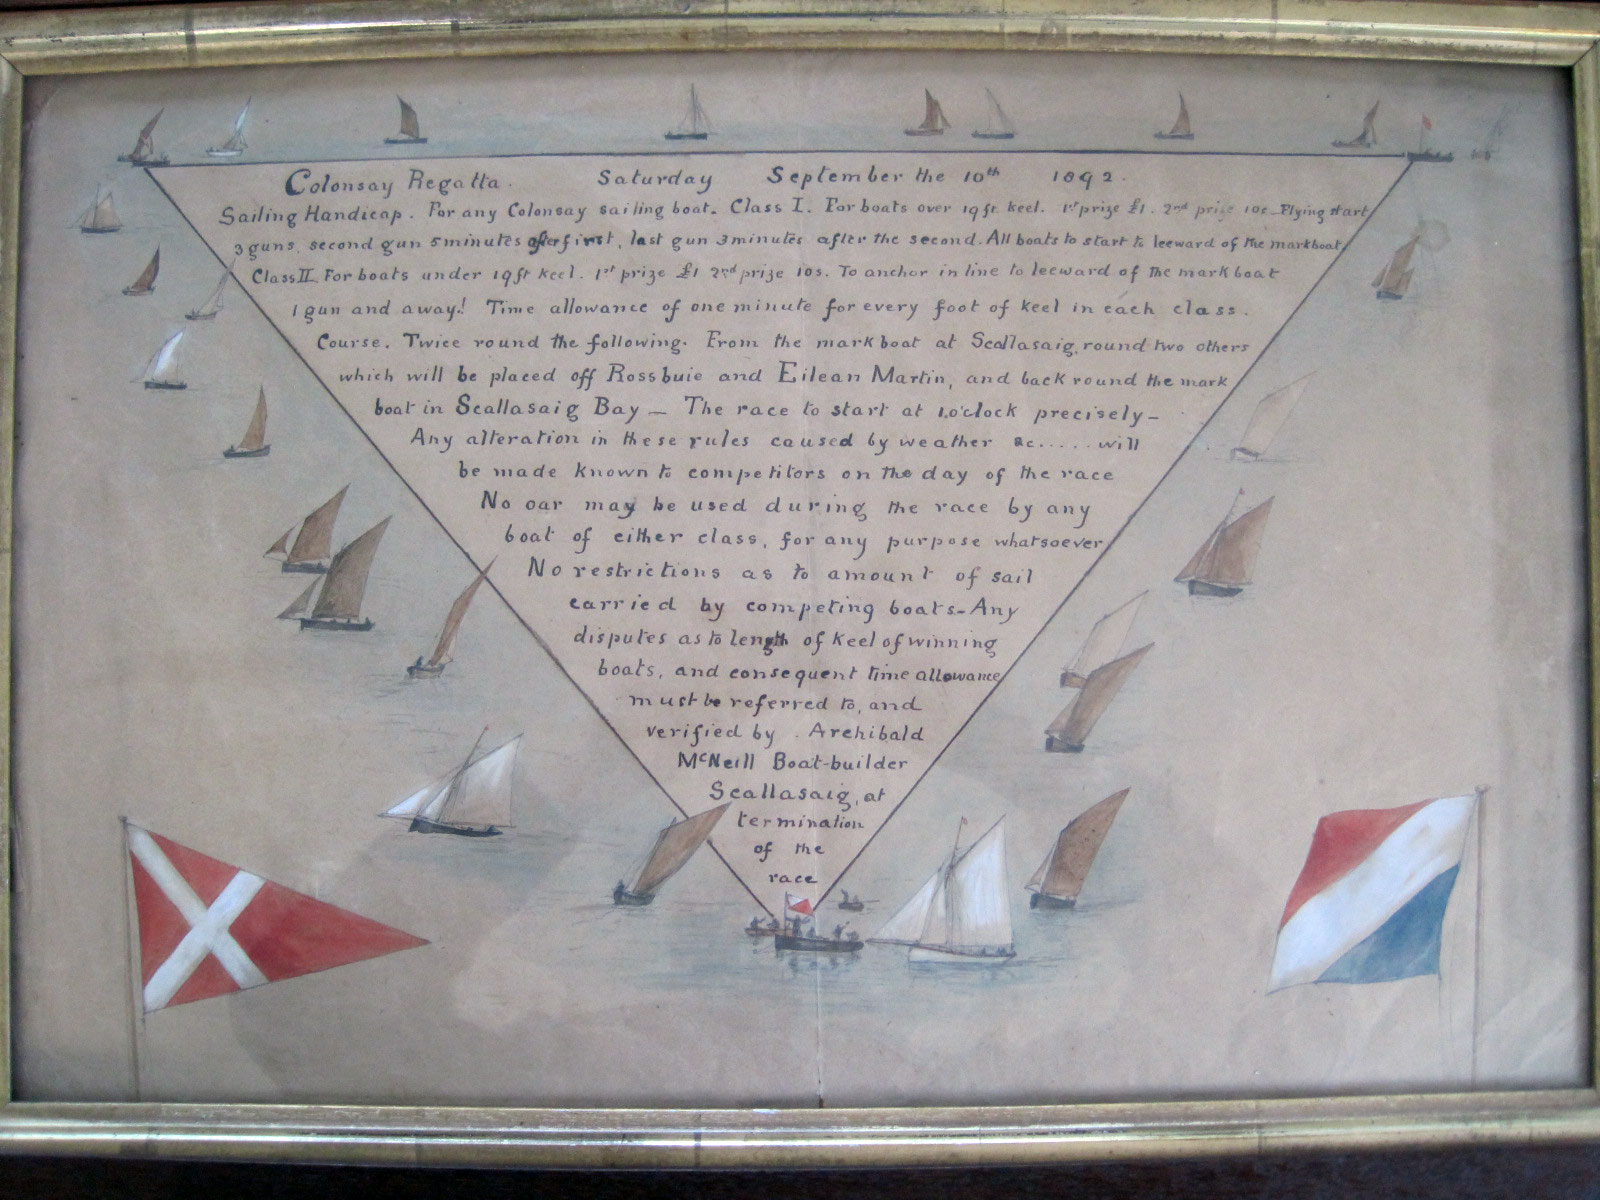 Colonsay Regatta. Saturday September the 10th 1892.
Sailing Handicap. For any Colonsay sailing boat. Class I. For boats over 19 ft keel. 1st prize £1. 2nd prize 10s. Flying start
3 guns, second gun 5 minutes after first, last gun 3 minutes after the second. All boats to start to leeward of the mark boat.
Class II. For boats under 19 ft keel. 1st prize £1 2nd prize 10s. To anchor in line to leeward of the mark boat
1 gun and away! Time allowance of one minute for every foot of keel in each class.
Course. Twice round the following. From the mark boat at Scallasaig, round two others
which will be placed off Rossbuie and Eilean Martin, and back round the mark
boat in Scallasaig Bay — The race to start at 1.o'clock precisely —
Any alteration in these rules caused by weather &c..... will
be made known to competitors on the day of the race
No oar may be used during the race by any
boat of either class, for any purpose whatsoever
No restrictions as to amount of sail
carried by competing boats - Any
disputes as to length of keel of winning
boats, and consequent time allowance
must be referred to, and
verified by Archibald
McNeill Boat-builder
Scallasaig, at
termination
of the
race